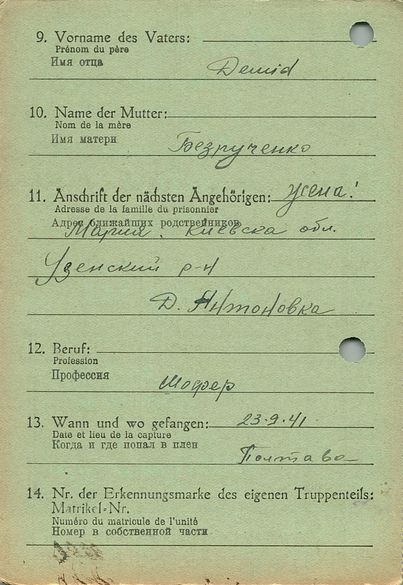 9. Vorname des Vaters:
Prénom du père
Имя отца
Demid
10. Name der Mutter:
Nom de la mère
Имя матери
Безрученко
11. Anschrift der nächsten Angehörigen: жена!
Adresse de la famille du prisonnier
Адрес ближайших родственников
Мария. Киевска обл.
Узенский р-н
Д. Антоновка
12. Beruf:
Profession
Профессия
шофер
13. Wann und wo gefangen: 23-9-41
Date et lieu de la capture
Когда и где попал в плен
Полтава
14. Nr. der Erkennungsmarke des eigenen Truppenteils:
Matrikel-Nr.
Numéro du matricule de l'unité
Номер в собственной части